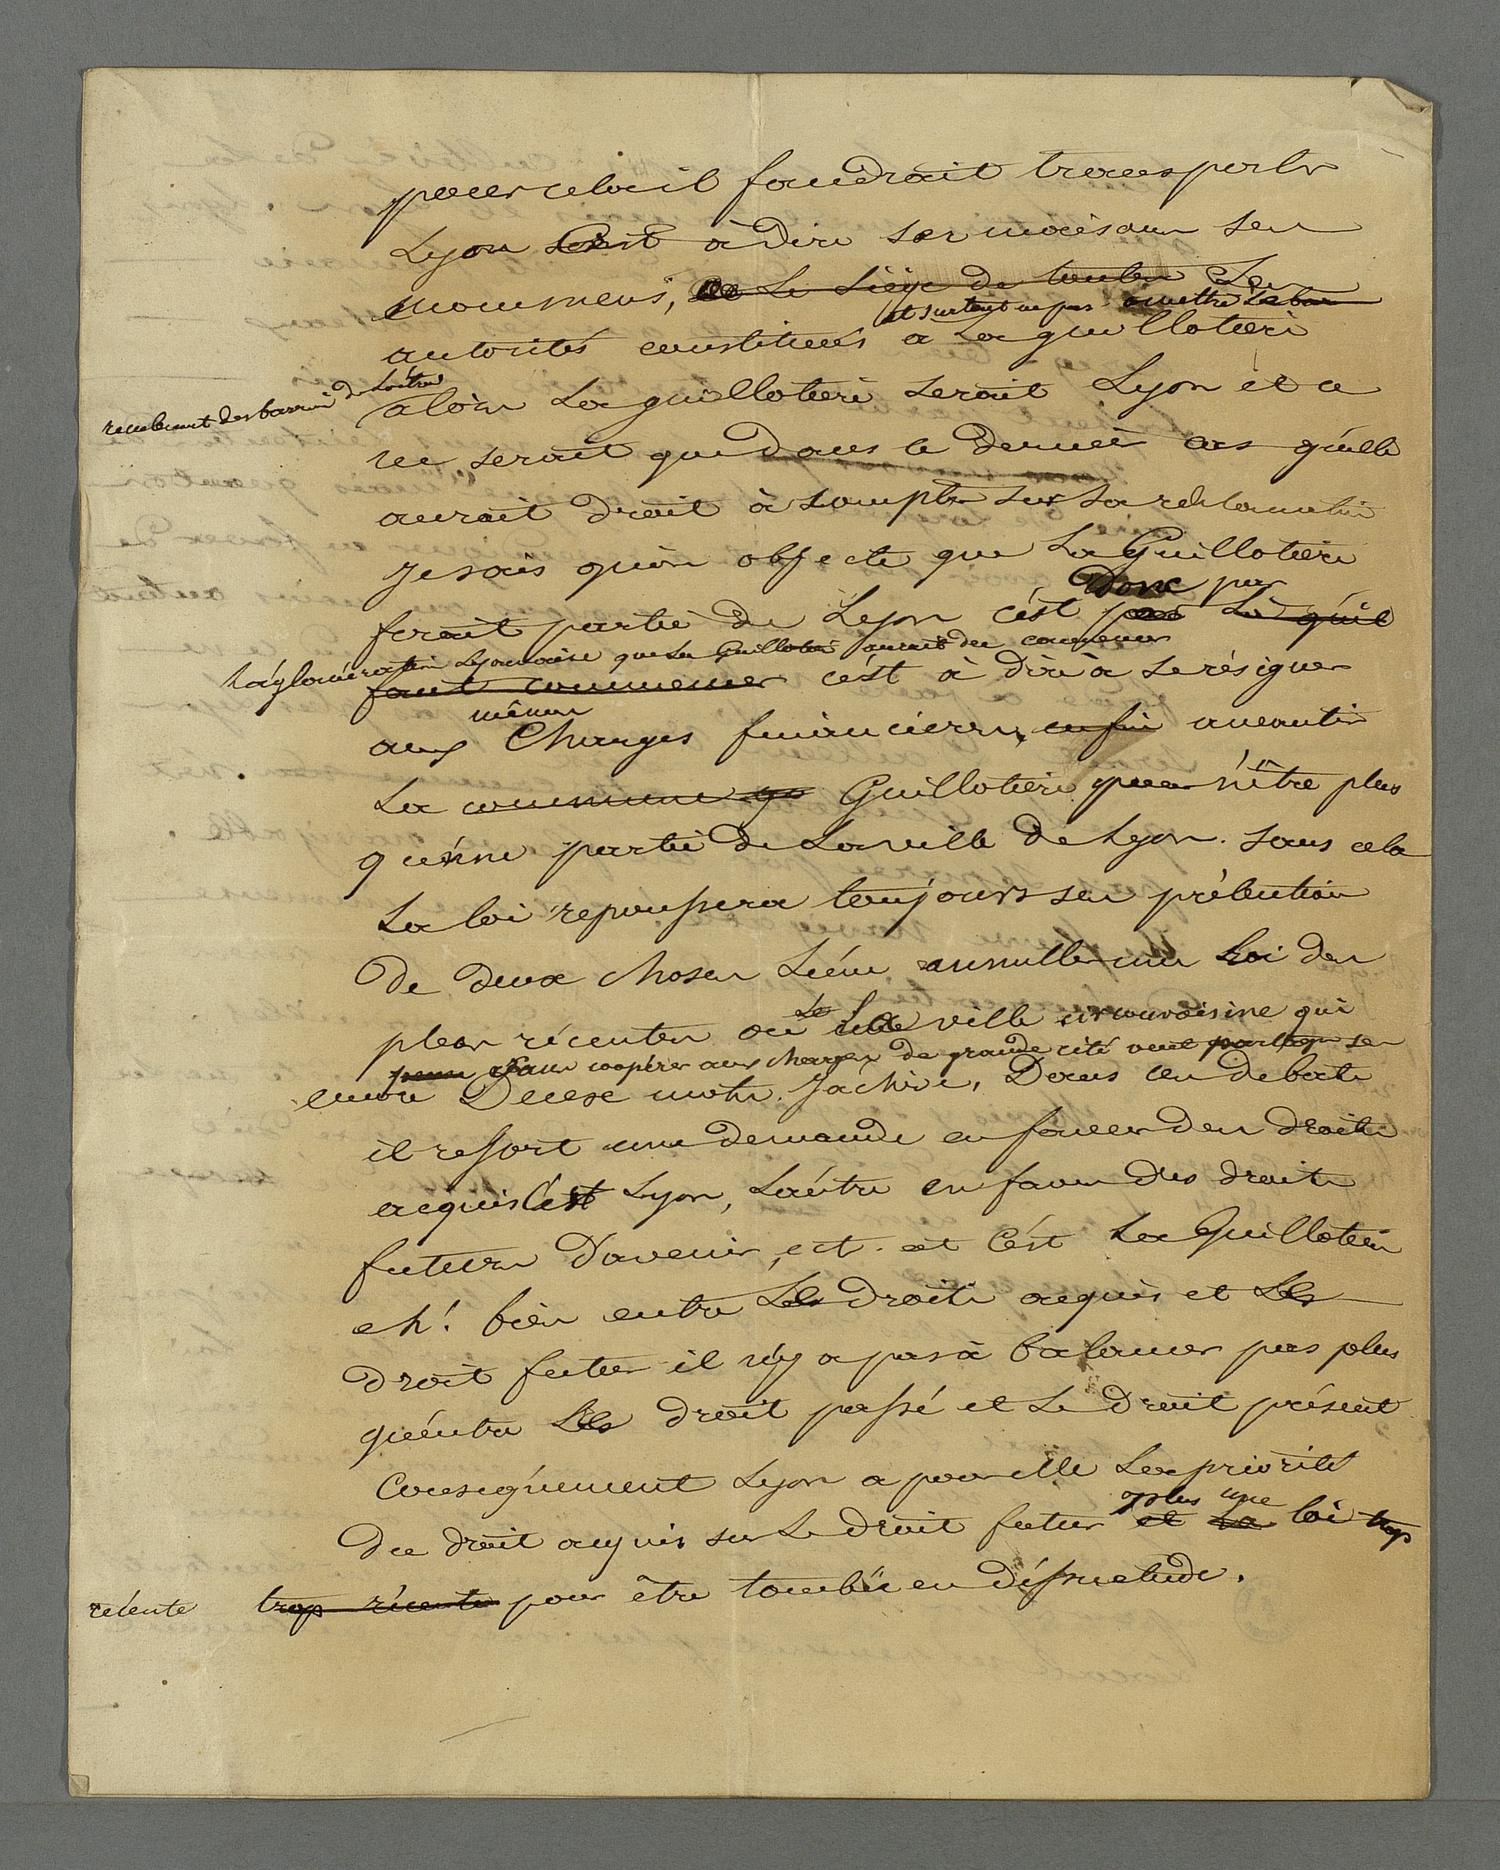 pour cela il faudrait transporter
Lyon c'est à dire ses maisons ses
monumens, le siège de toutes les
et surtout ne pas omettre le bar
autorités constituées à la guillotière
reculement des barrière de l'octroi
alors la guillotière serait Lyon et ce
ne serait que dans ce dernier cas qu'elle
aurait droit à compter sur sa réclamation
Je sais qu'on objecte que La Guillotière
donc par
ferait partie de Lyon c'est par là qu'il
L'aglomération Lyonnaise que la Guillotière aurait du commencer
faut commencer c'est à dire à se résigner
mêmes
aux Charges financieres, enfin aneantir
La commune Guillotière pour n'être plus
qu'une partie de la ville de Lyon. sans cela
La loi repoussera toujours ses prétention
De deux choses L'une annuller une Loi des
plus récentes ou La ville circonvoisine qui
sans coopérer aux charges de grande cité veut partager ses
encore Deux mots. J'achève, Dans ces debats
il ressort une demande en faveur des droits
acquis c'est Lyon, L'autre en faveur des droits
futurs D'avenir, ect. et c'est La Guillotière
eh! bien entre Les droits acquis et Les
droit futur il n'y a pas à balancer pas plus
qu'entre Les droit passé et Le droit présent
Conséquement Lyon a pour elle La priorité
plus une
Du droit acquis sur Le droit futur et la loi trop
récente trop récente pour être tombée en déssuetude.